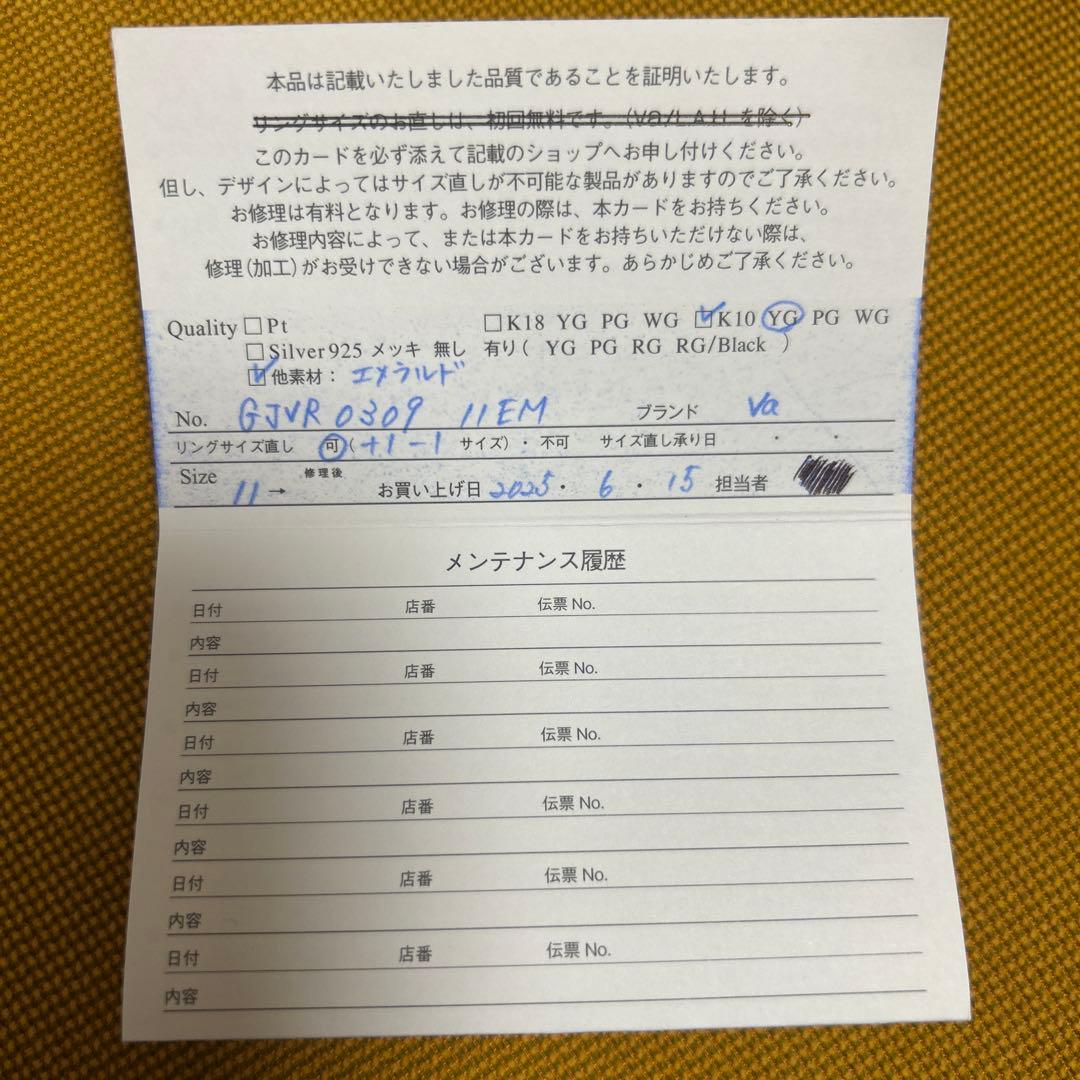 本品は記載いたしました品質であることを証明いたします。
リングサイズのお直しは、初回無料です。(va/LAH を除く)
このカードを必ず添えて記載のショップへお申し付けください。
但し、デザインによってはサイズ直しが不可能な製品がありますのでご了承ください。
お修理は有料となります。お修理の際は、本カードをお持ちください。
お修理内容によって、または本カードをお持ちいただけない際は、
修理(加工)がお受けできない場合がございます。あらかじめご了承ください。
Quality □Pt □K18 YG PG WG ☑K10 YG PG WG
□Silver925 メッキ 無し 有り( YG PG RG RG/Black )
☑他素材: エメラルド
No. GJVR 0309 11EM ブランド va
リングサイズ直し 可(+1-1 サイズ)・不可 サイズ直し承り日 ・ ・
Size 11 → 修理後 お買い上げ日 2025・6・15 担当者
メンテナンス履歴
日付 店番 伝票 No.
内容
日付 店番 伝票 No.
内容
日付 店番 伝票 No.
内容
日付 店番 伝票 No.
内容
日付 店番 伝票 No.
内容
日付 店番 伝票 No.
内容